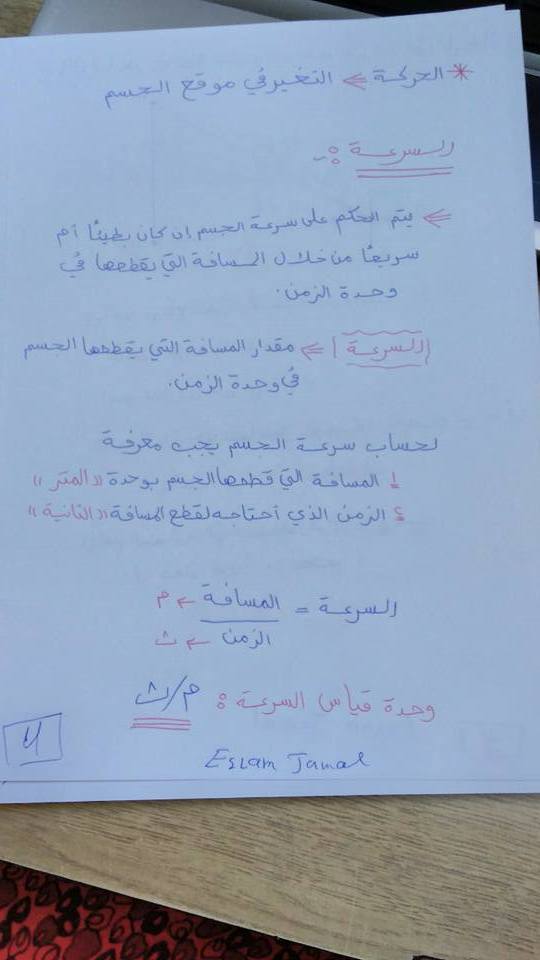 * الحركة ⇐ التغير في موقع الجسم
السرعة :-
⇐ يتم الحكم على سرعة الجسم إن كان بطيئًا أم
سريعًا من خلال المسافة التي يقطعها في
وحدة الزمن.
السرعة ⇐ مقدار المسافة التي يقطعها الجسم
في وحدة الزمن.
لحساب سرعة الجسم يجب معرفة
١ المسافة التي قطعها الجسم بوحدة «المتر»
٢ الزمن الذي احتاجه لقطع المسافة «الثانية»
السرعة = المسافة ← م
الزمن ← ث
وحدة قياس السرعة : م/ث
Eslam Jamal